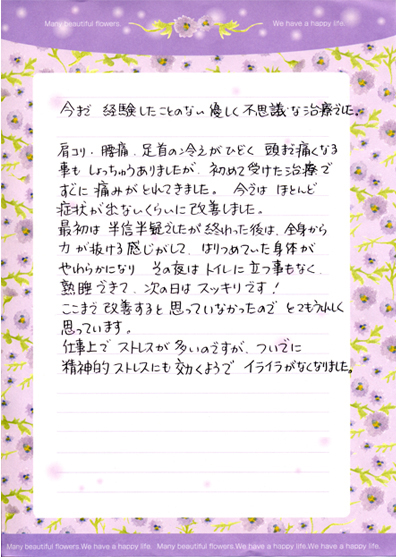 Many beautiful flowers.
We have a happy life.
今まで 経験したことのない 優しく 不思議な治療でした。
肩コリ・腰痛、足首の冷えがひどく 頭まで痛くなる
事も しょっちゅうありましたが、初めて受けた治療で
すぐに 痛みがとれてきました。 今では ほとんど
症状が出ないくらいに 改善しました。
最初は 半信半疑でしたが 終わった後は、全身から
力が抜ける感じがして、はりつめていた身体が
やわらかになり その夜は トイレに 立つ事もなく、
熟睡できて、次の日は スッキリです!
ここまで 改善すると 思っていなかったので とてもうれしく
思っています。
仕事上で ストレスが 多いのですが、ついでに
精神的ストレスにも 効くようで イライラがなくなりました。
Many beautiful flowers.We have a happy life. Many beautiful flowers.We have a happy life.We have a happy life.